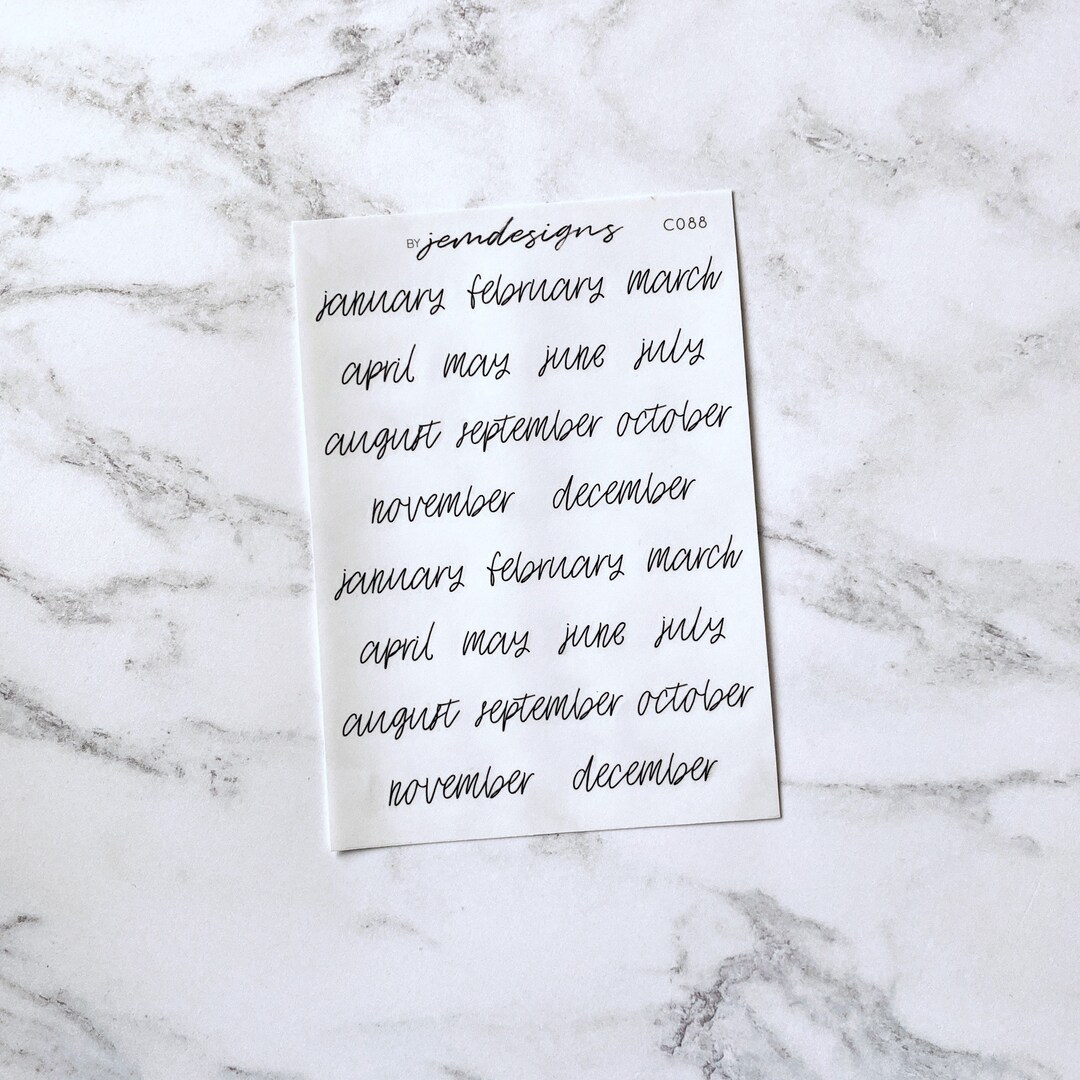 BY jemdesigns C088
january february march
april may june july
august september october
november december
january february march
april may june july
august september october
november december